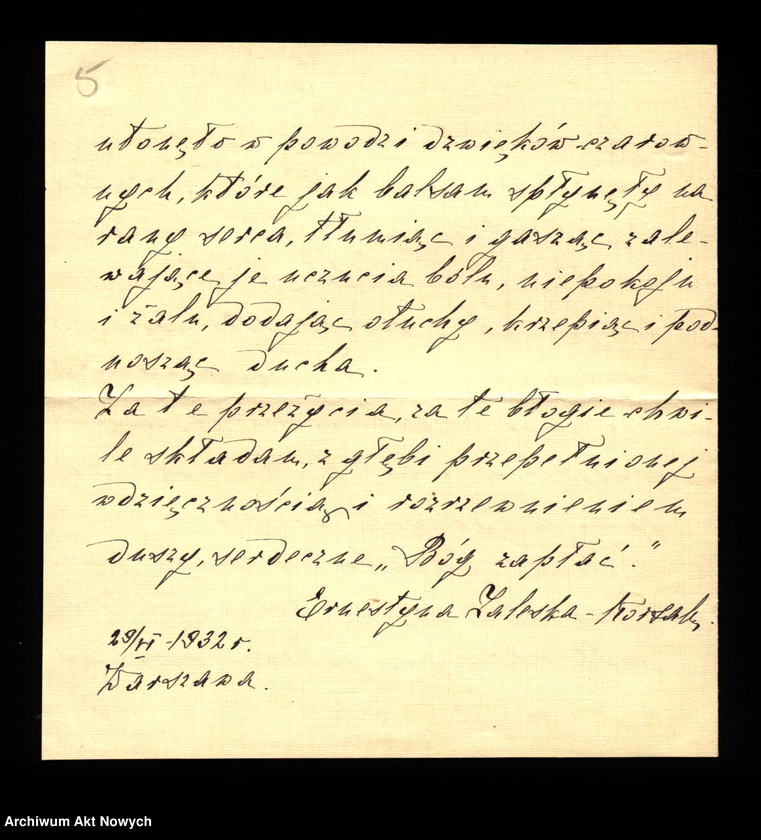 5
utonęło w powodzi dzwięków czarow-
nych, które jak balsam spłynęły na
rany serca, tłumiąc i gasząc zale-
wające je uczucia bólu, niepokoju
i żalu, dodając otuchy, krzepiąc i pod-
nosząc ducha.
Za te przeżycia, za te błogie chwi-
le składam, z głębi przepełnionej
wdzięcznością i rozrzewnieniem
duszy, serdeczne „Bóg zapłać."
Ernestyna Zaleska-Korsak.
29/VI-1932 r.
Warszawa.
Archiwum Akt Nowych